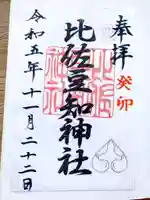 奉拝
癸卯
比佐豆知神社
令和五年十一月二十二日